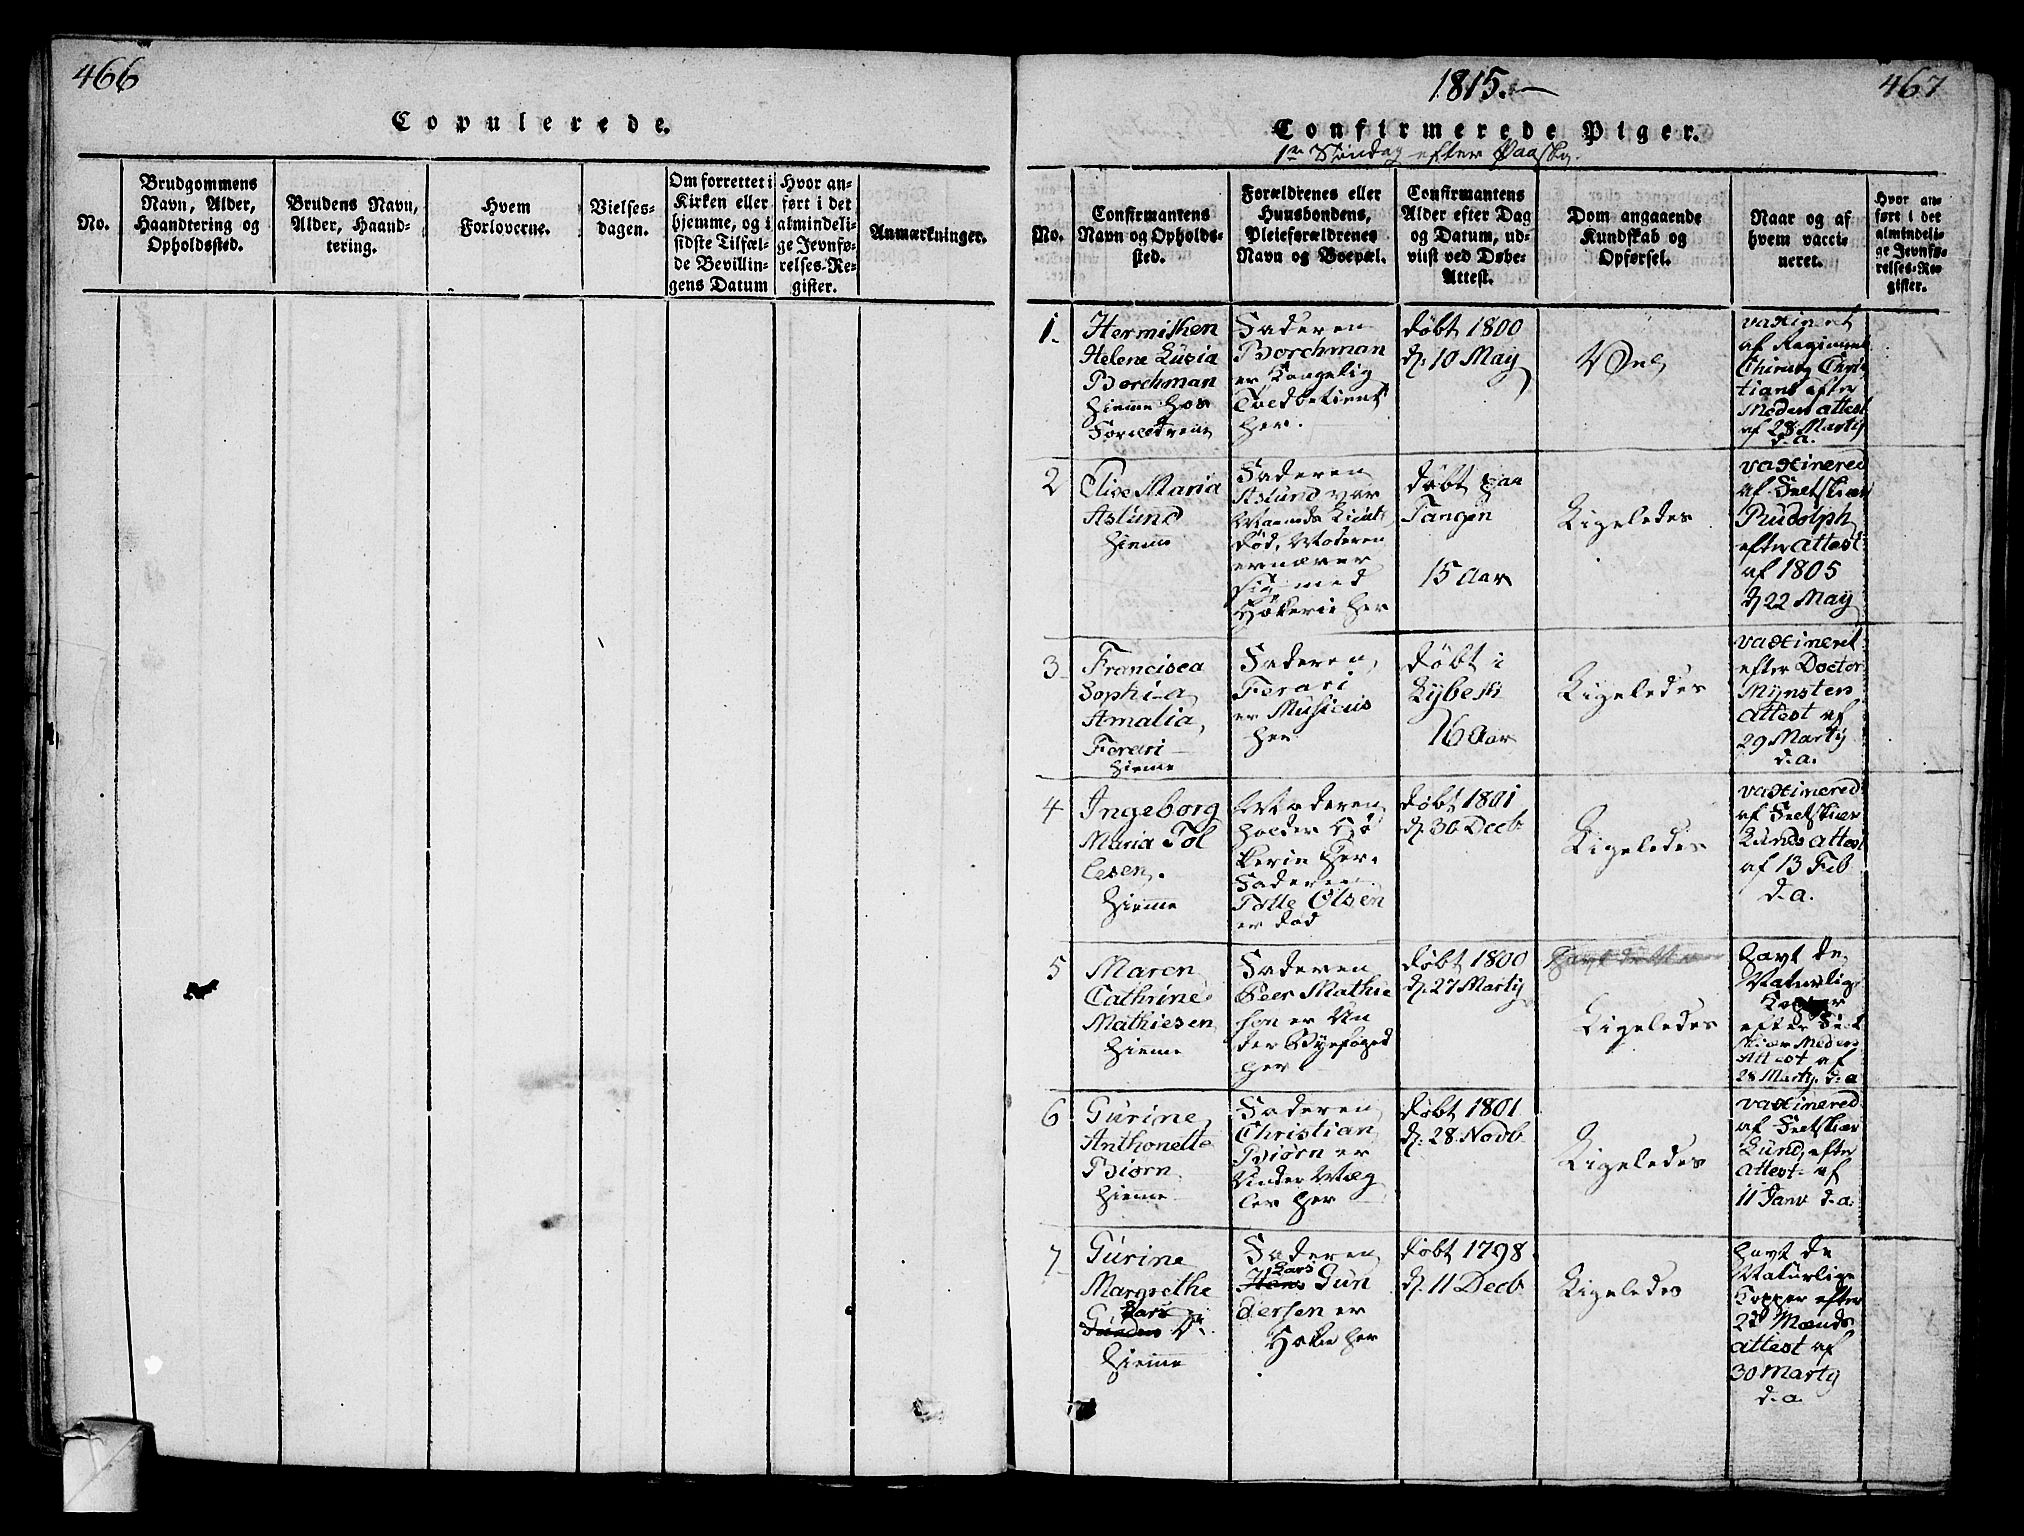 466
Copulerede.
No.
Brudgommens
Navn, Alder,
Haandtering og
Opholdssted.
Brudens Navn,
Alder, Haand-
tering.
Hvem
Forloverne.
Vielses-
dagen.
Om forrettet i
Kirken eller
hjemme, og i
sidste Tilfæl-
de Bevillin-
gens Datum
Hvor an-
ført i det
almindeli-
ge Jevnfø-
relses-Re-
gister.
Anmærkninger.
1815.
467
Confirmerede Piger.
1ste Søndag efter Paaske.
No.
Confirmantens
Navn og Opholds-
sted.
Forældrenes eller
Huusbondens,
Pleieforældrenes
Navn og Boepæl.
Confirmantens
Alder efter Dag
og Datum, ud-
viist ved Døbe-
Attest.
Dom angaaende
Kundskab og
Opførsel.
Naar og af
hvem vacci-
neret.
Hvor an-
ført i det
almindeli-
ge Jevnfø-
relses-Re-
gister.
1.
Hermiken
Helene Lusia
Borchman
hieme hos
Forældrene
Faderen
Borchman
er Kongelig
Toldbetient
her.
døbt 1800
d. 10 May
Vel
vaxineret
af Regiments
Chirurg Chris
tians efter
Meders attest
af 28 Marty
d.a.
2
Elise Maria
Aslund
hieme
Faderen
Aslund var
død, Moderen
ernærer
sig med
Høkerie her
døbt paa
Tangen
15 Aar
Ligeledes
vaxinered
af Feltskiær
Rudolph
efter attest
af 1805
d. 22 May
3
Francisca
Sophia
Amalia,
Ferari
hieme
Faderen
Ferari
er Musicus
her
døbt i
Lybesk
16 Aar
Ligeledes
vaxineret
efter Doctor
Mynsters
attest af
29 Marty
d.a.
4
Ingeborg
Maria Tol
lesen.
hieme
Moderen
holder Hø
kerie her.
Faderen
Tolle Olsen
er død
døbt 1801
d. 30 Decb
Ligeledes
vaxinered
af Feltskiær
Lunds attest
af 13 Feb
d.a.
5
Maren
Cathrine
Mathiesen
hieme
Faderen
Peer Mathie
sen er Un
der Byefoged
her
døbt 1800
d. 27 Marty
Ligeledes
havt de
Naturlig
Kopper
efter Felt
skiær Meders
Attest af
28 Marty. d.a
6
Gurine
Anthonette
Biørn
hieme
Faderen
Christian
Biørn er
Under Mæg
ler her
døbt 1801
d. 28. Novb
Ligeledes
vaxinered
af Feltskiær
Lund, efter
attest af
11 Janv d.a.
7
Gurine
Margrethe
Lars
Dr.
hieme
Faderen
Lars
Hans Gun
dersen er
Høker her
døbt 1798
d. 11 Decb
Ligeledes
havt de
Naturlige
Kopper efter
2de Mænds
attest af
30 Marty
d.a.